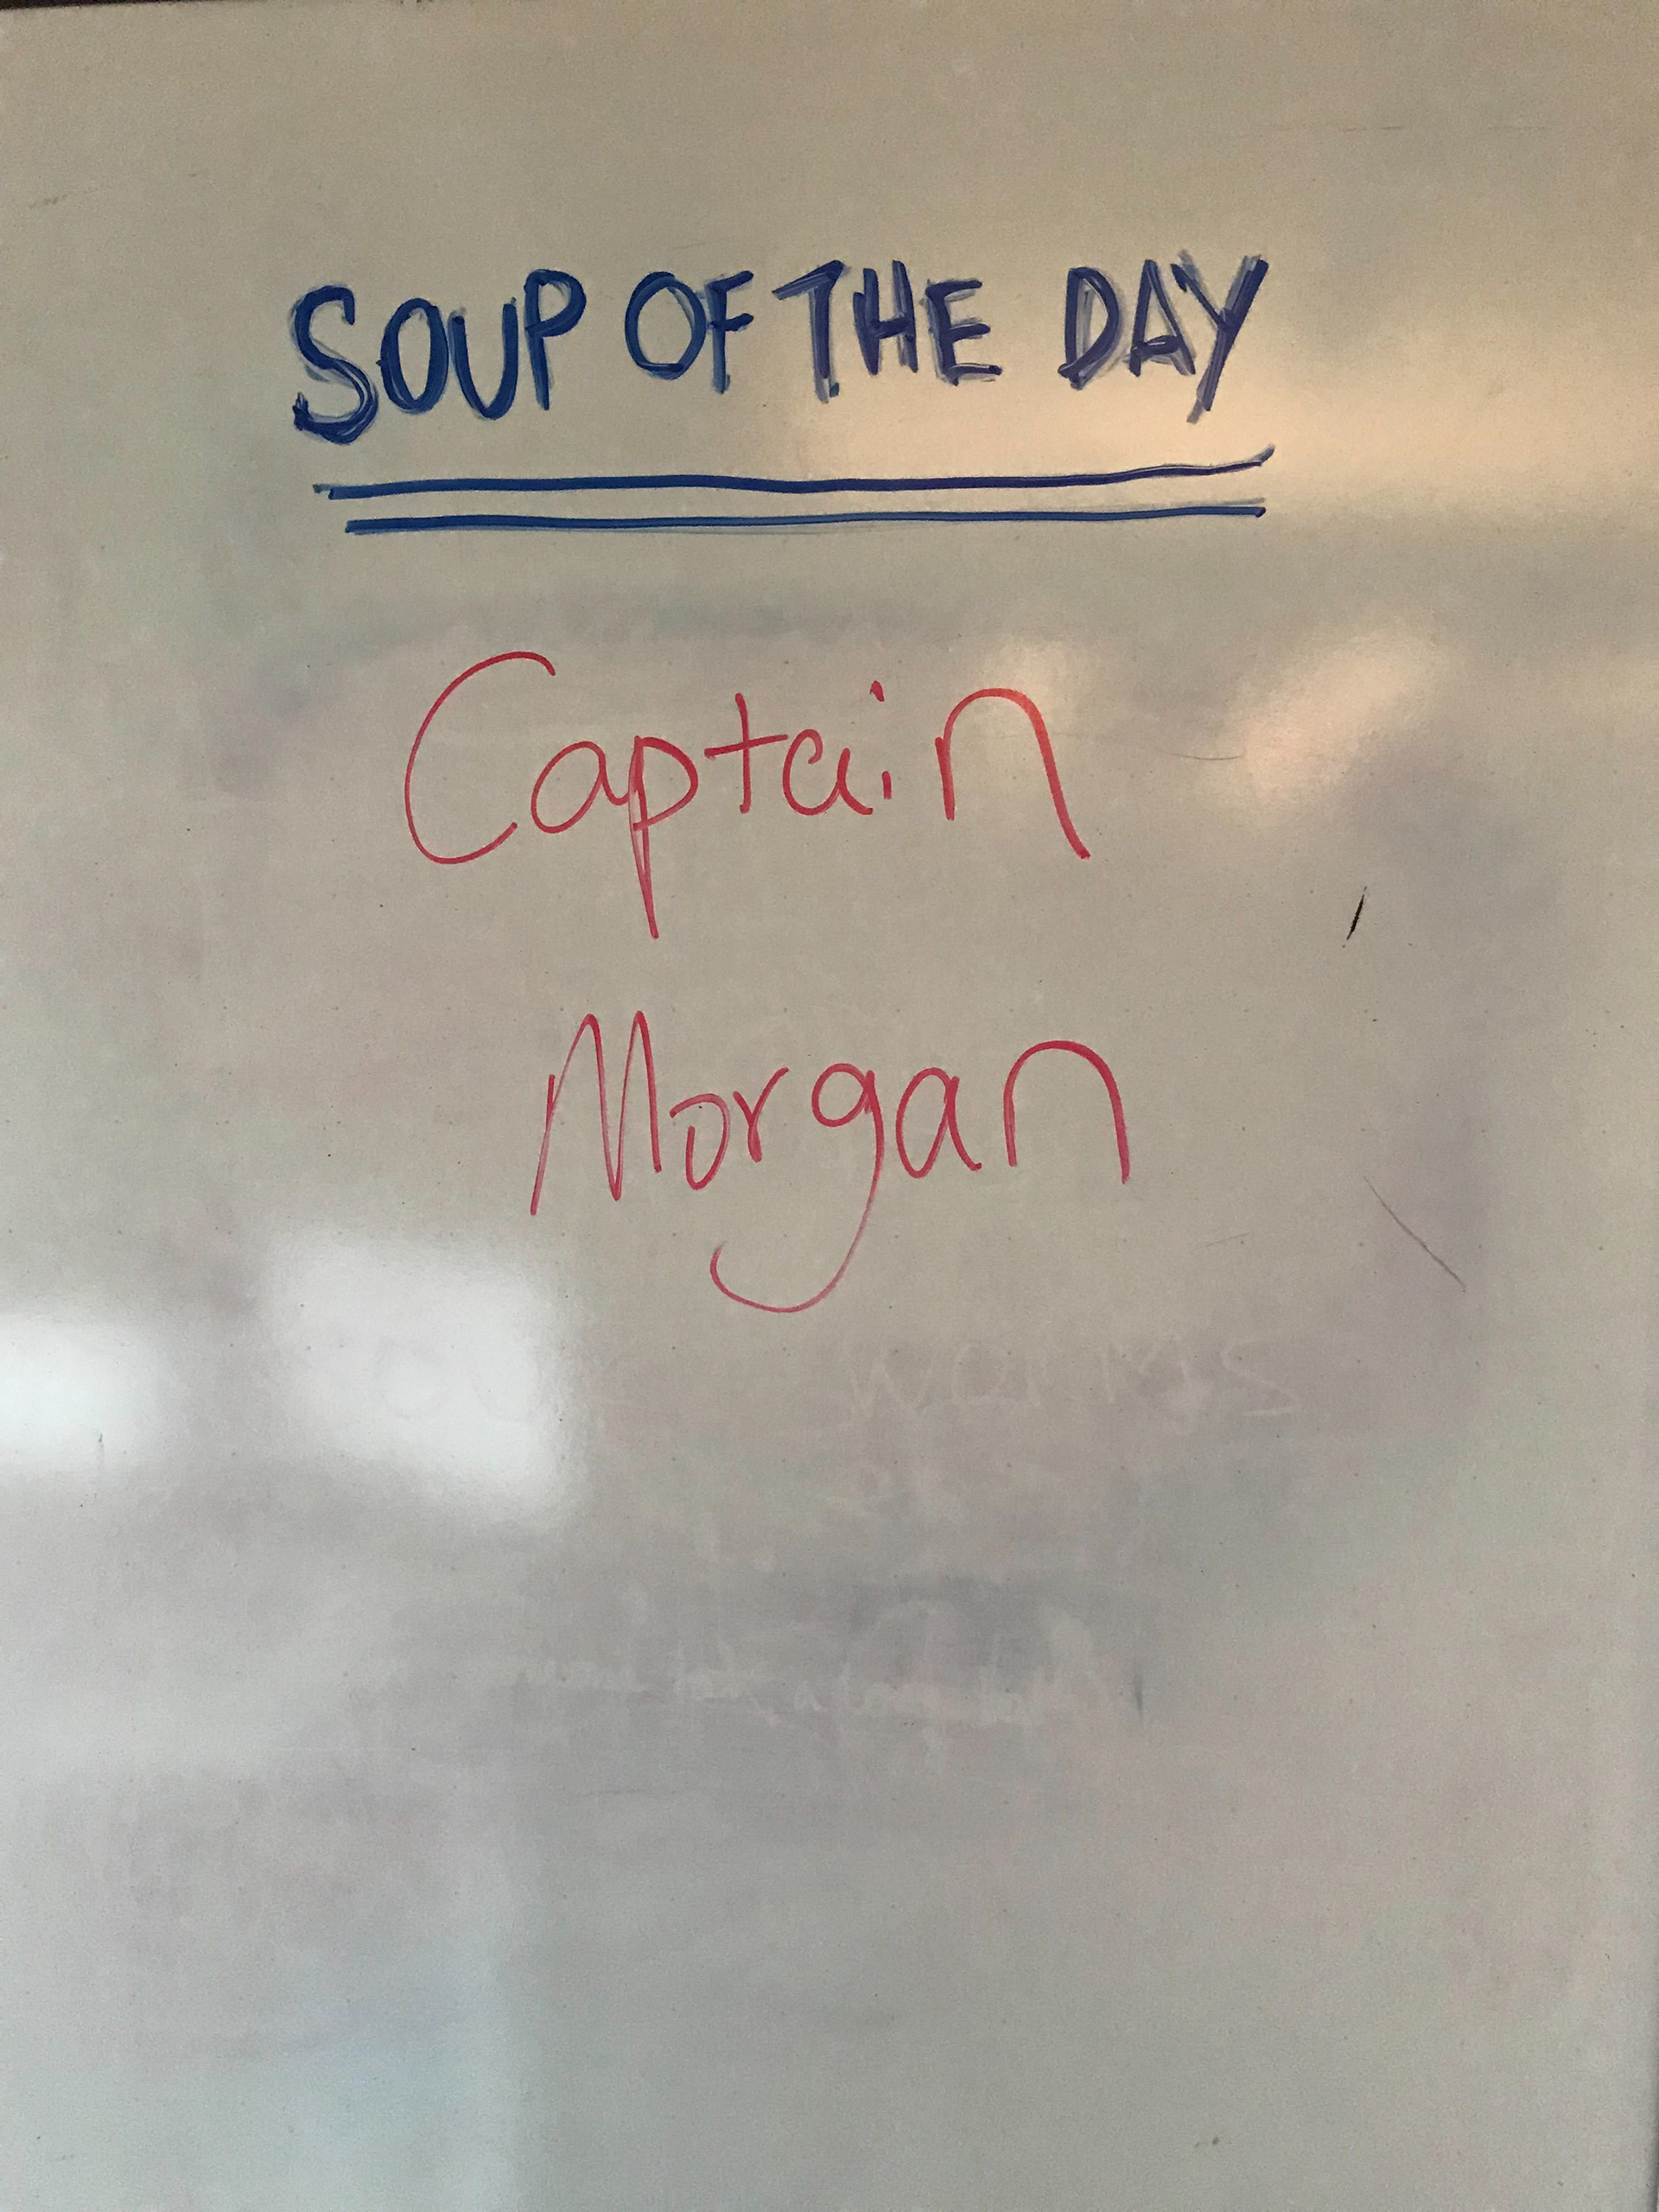 SOUP OF THE DAY
Captain
Morgan